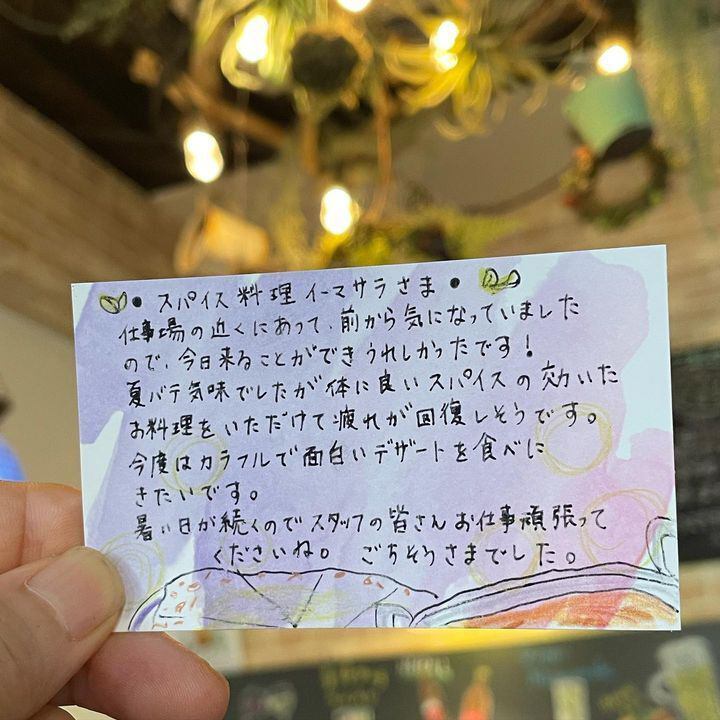 • スパイス料理 イーマサラさま •
仕事場の近くにあって、前から気になっていました
ので、今日来ることができうれしかったです！
夏バテ気味でしたが体に良いスパイスの効いた
お料理をいただけて疲れが回復しそうです。
今度はカラフルで面白いデザートを食べに
きたいです。
暑い日が続くのでスタッフの皆さんお仕事頑張って
くださいね。 ごちそうさまでした。